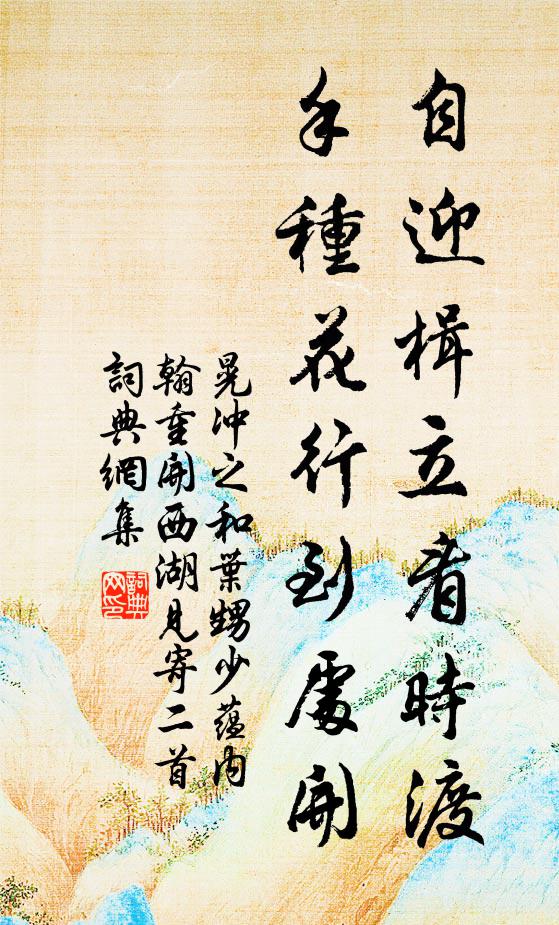 自迎楫立看時渡
手種花行到處開
晁沖之和葉甥少蘊內
翰重開西湖見寄二首
詞典網集
詞典
网印